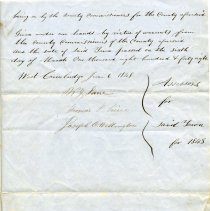 being by the County Commissioners for the County aforesaid
Given under our hands by virtue of warrants from
the County Commissioners of the County aforesaid
and the vote of said Town passed on the sixth
day of March One thousand eight hundred & forty eight
West Cambridge June 1 1848
Assessors
for
Joseph O Wellington
said Town
for 1848